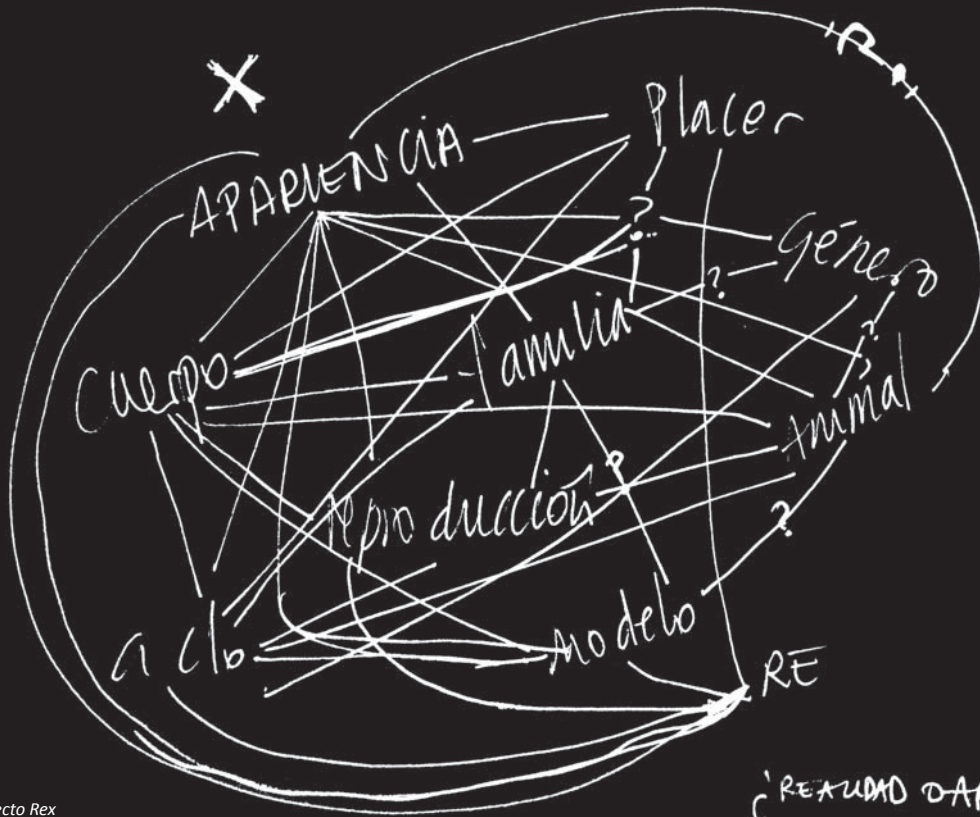 X
R.
APARIENCIA
Placer
?
Género
?
?
Cuerpo
familia
Animal
Reproducción
?
?
ciclo
modelo
RE
¿REALIDAD O AP
ecto Rex